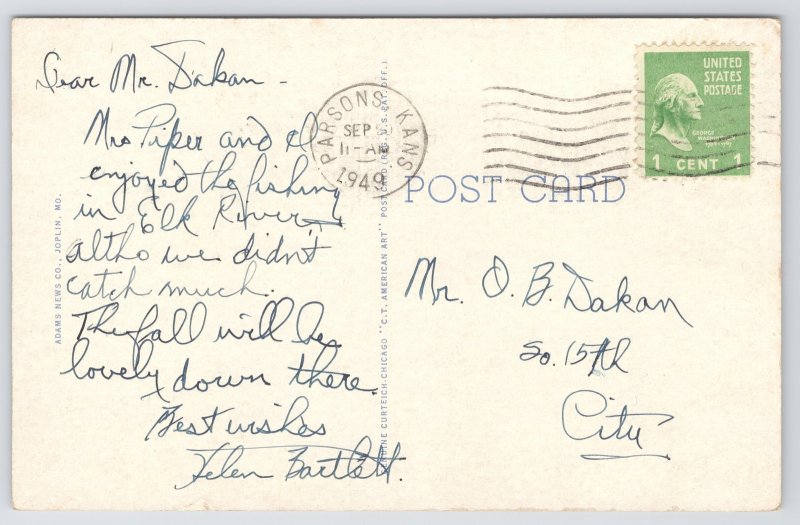 Dear Mr. Dakan -
Mrs Piper and I
enjoyed the fishing
in Elk River -
altho we didn't
catch much.
The fall will be
lovely down there.
Best wishes
Helen Bartlett.
ADAMS NEWS CO., JOPLIN, MO.
GENUINE CURTEICH-CHICAGO "C.T. AMERICAN ART" POST CARD (REG. U.S. PAT. OFF.)
PARSONS, KANS
SEP
11-AM
1949
UNITED
STATES
POSTAGE
GEORGE
1 CENT 1
POST CARD
Mr. O. B. Dakan
So. 15th
City